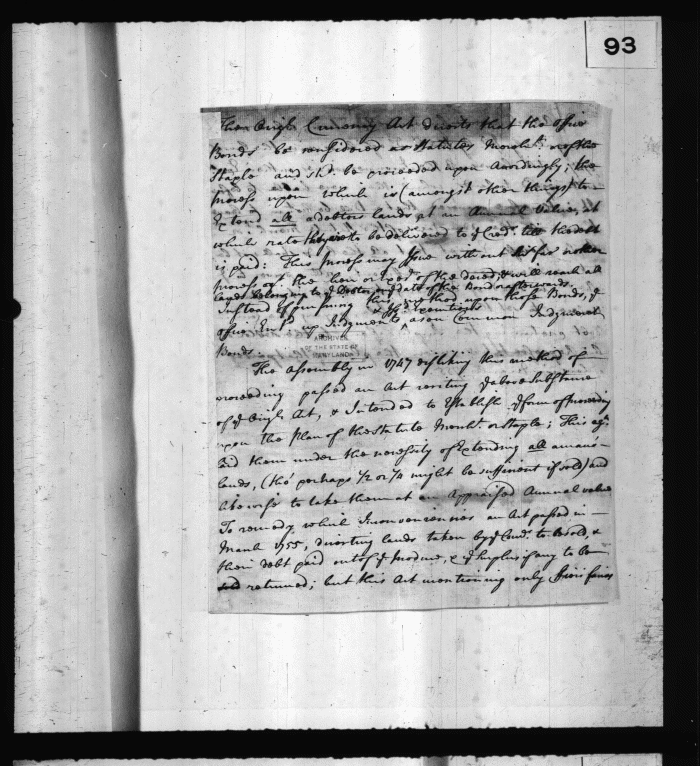 93
The Origl. Currency Act directs that the Office
Bonds be considered as Statutes Mercht. or of the
Staple and shd. be proceeded upon Accordingly; the
Process upon which is (amongst other things) to
Extend all a debtors lands at an Annual Value, at
which rate they are to be delivered to ye Credr. till the debt
is paid: This Process may Issue without further
process agt. the heir or Exor. of the deced. & will reach all
lands belonging to ye Debtor date of the Bond or afterwards.
Instead of pursuing this method upon those Bonds, ye
& Executions
Office up Judgments as on Common Judgment
Bonds
ARCHIVES
OF THE STATE OF
MARYLAND
The Assembly in 1747 disliking this method of
proceeding passed an Act reciting ye above Substance
of ye Origl. Act, & Intended to Establish ye form of proceeding
upon the Plan of the Statute Mercht. or Staple; This agn.
laid them under the necessity of Extending all a man's
lands, (tho' perhaps 1/2 or 1/4 might be sufficient if sold) and
likewise to take them at an Appraised Annual value
To remedy which Inconveniencies an Act passed in
March 1755, directing lands taken by ye to be sold, &
their debt paid out of ye produce, & ye surplus if any to be
returned; but this Act mentioning only